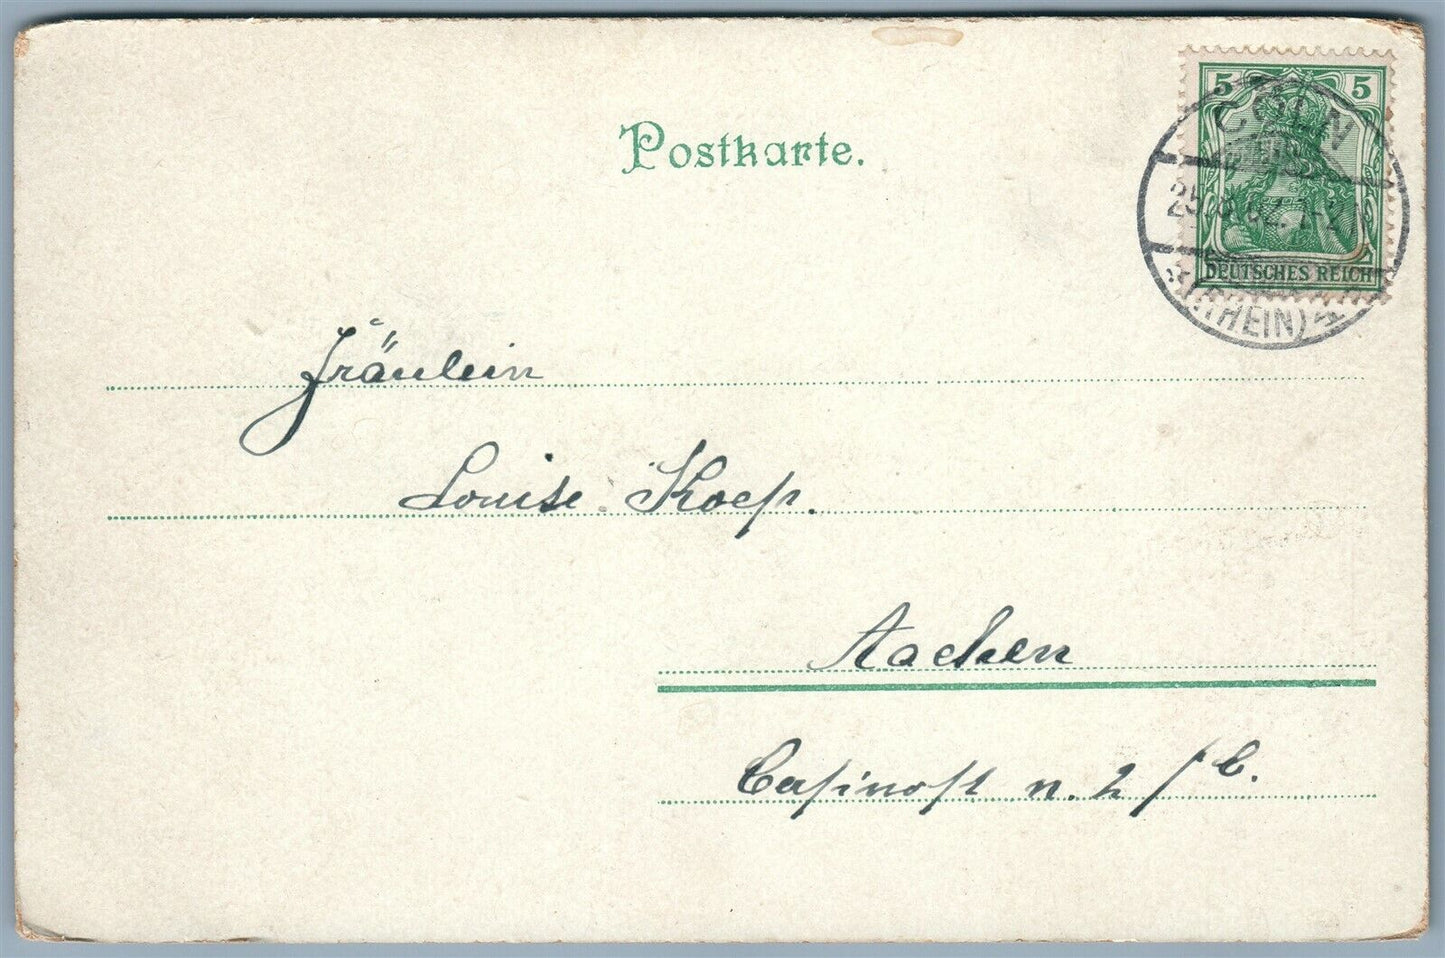 Postkarte.
5 5
DEUTSCHES REICH
CÖLN
(RHEIN)
Fräulein
Louise Koep.
Aachen
Casinost n. 2/C.